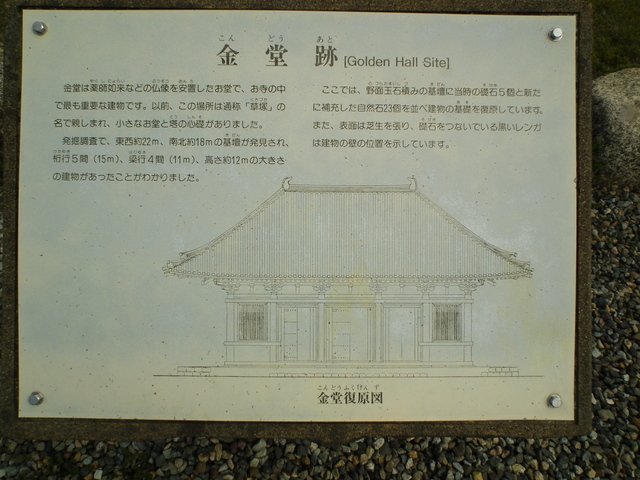 金堂跡 [Golden Hall Site]
金堂は薬師如来などの仏像を安置したお堂で、お寺の中
で最も重要な建物です。以前、この場所は通称「草塚」の
名で親しまれ、小さなお堂と塔の心礎がありました。
発掘調査で、東西約22m、南北約18mの基壇が発見され、
桁行5間(15m)、梁行4間(11m)、高さ約12mの大きさ
の建物があったことがわかりました。
ここでは、野面玉石積みの基壇に当時の礎石5個と新た
に補充した自然石23個を並べ建物の基礎を復原しています。
また、表面は芝生を張り、礎石をつないでいる黒いレンガ
は建物の壁の位置を示しています。
金堂復原図